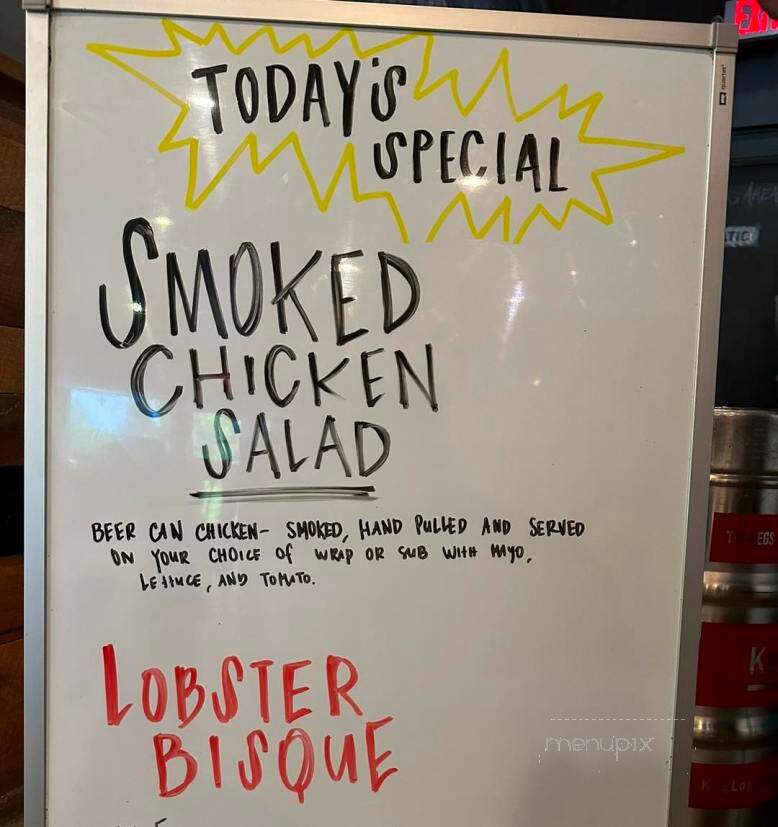 TODAY'S
SPECIAL
SMOKED
CHICKEN
SALAD
BEER CAN CHICKEN- SMOKED, HAND PULLED AND SERVED
ON YOUR CHOICE OF WRAP OR SUB WITH MAYO,
LETTUCE, AND TOMATO.
LOBSTER
BISQUE
menupix